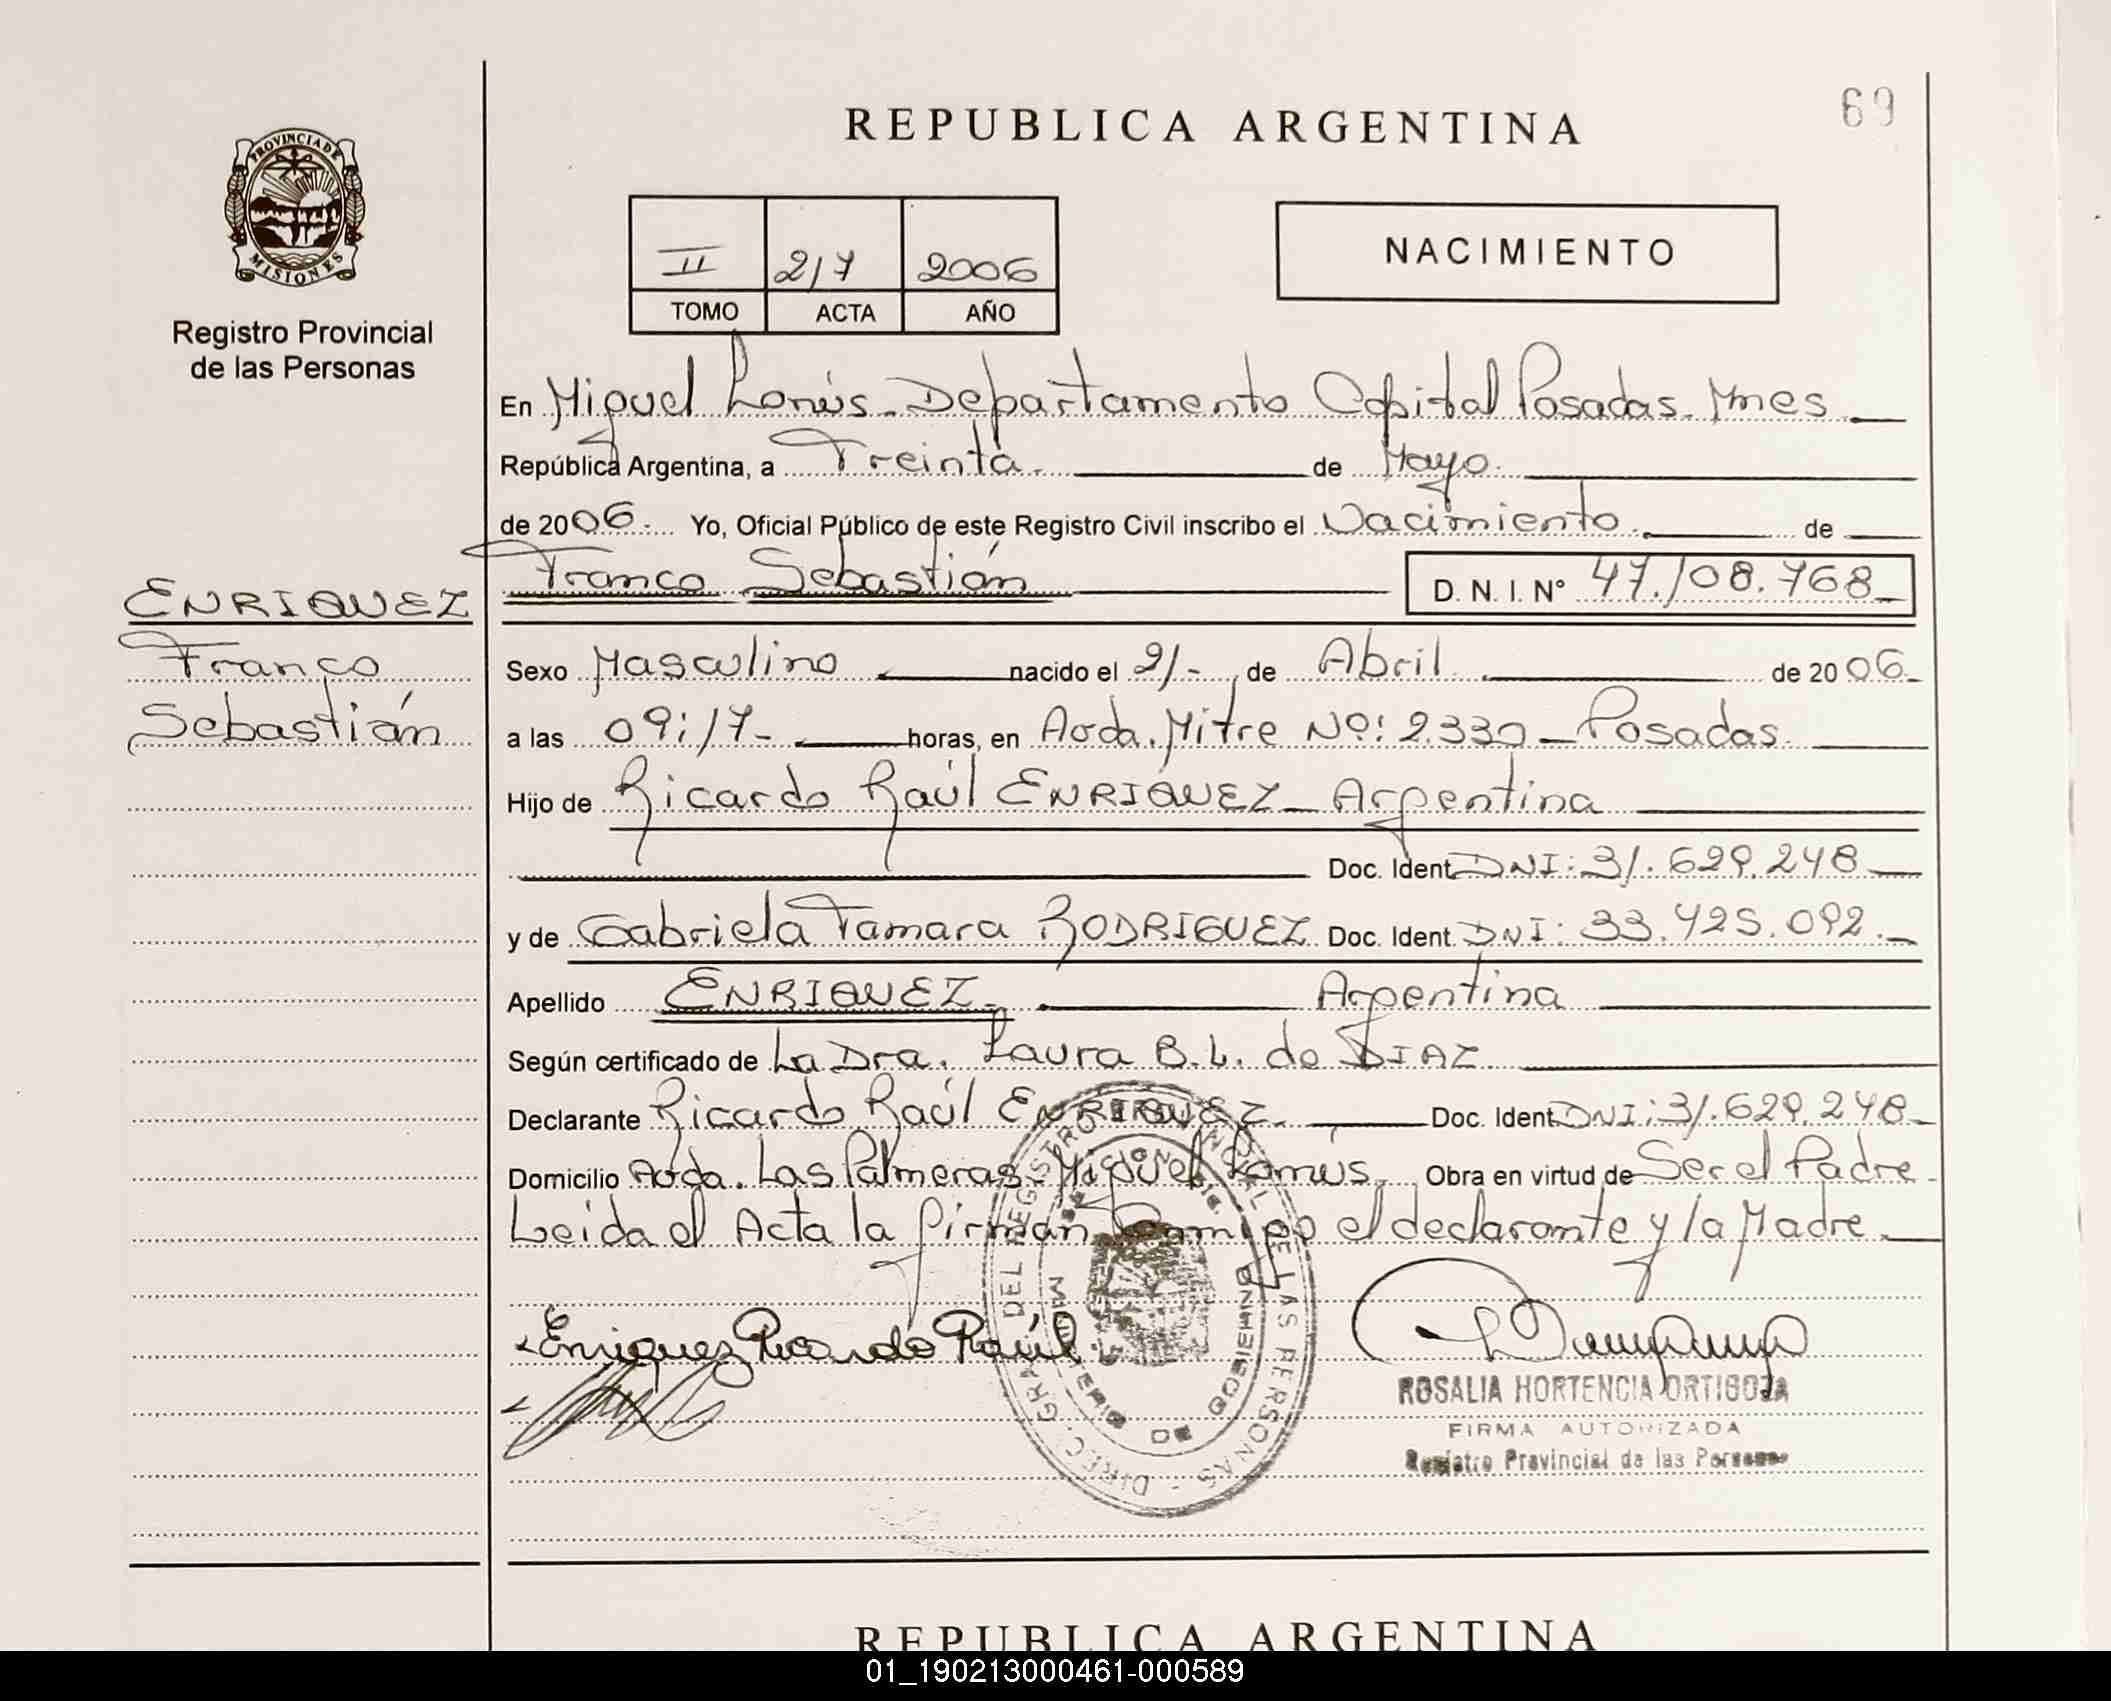 REPUBLICA ARGENTINA
69
PROVINCIA DE
MISIONES
Registro Provincial
de las Personas
II 217 2006
TOMO ACTA AÑO
NACIMIENTO
En Miguel Lanús - Departamento Capital Posadas - Mnes
República Argentina, a Treinta de Mayo
de 2006.- Yo, Oficial Público de este Registro Civil inscribo el Nacimiento de
Franco Sebastián D. N. I. Nº 47.108.768
ENRIQUEZ
Franco
Sebastián
Sexo Masculino nacido el 21- de Abril de 2006.
a las 09:17- horas, en Avda. Mitre Nº: 2.330 - Posadas.
Hijo de Ricardo Raúl ENRIQUEZ - Argentina
Doc. Ident. DNI: 31.629.248
y de Gabriela Tamara RODRIGUEZ Doc. Ident. DNI: 33.425.092.-
Apellido ENRIQUEZ.- Argentina
Según certificado de La Dra. Laura B. L. de DIAZ
Declarante Ricardo Raúl ENRIQUEZ. Doc. Ident. DNI: 31.629.248-
Domicilio Avda. Las Palmeras - Miguel Lanús. Obra en virtud de Ser el Padre-
Leida el Acta la firman Conmigo el declarante y la Madre.
Enriquez Ricardo Raúl
DIREC. GRAL DEL REGISTRO PROVINCIAL DE LAS PERSONAS
MINISTERIO DE GOBIERNO
MISIONES
ROSALIA HORTENCIA ORTIGOZA
FIRMA AUTORIZADA
Registro Provincial de las Personas
REPUBLICA ARGENTINA
01_190213000461-000589